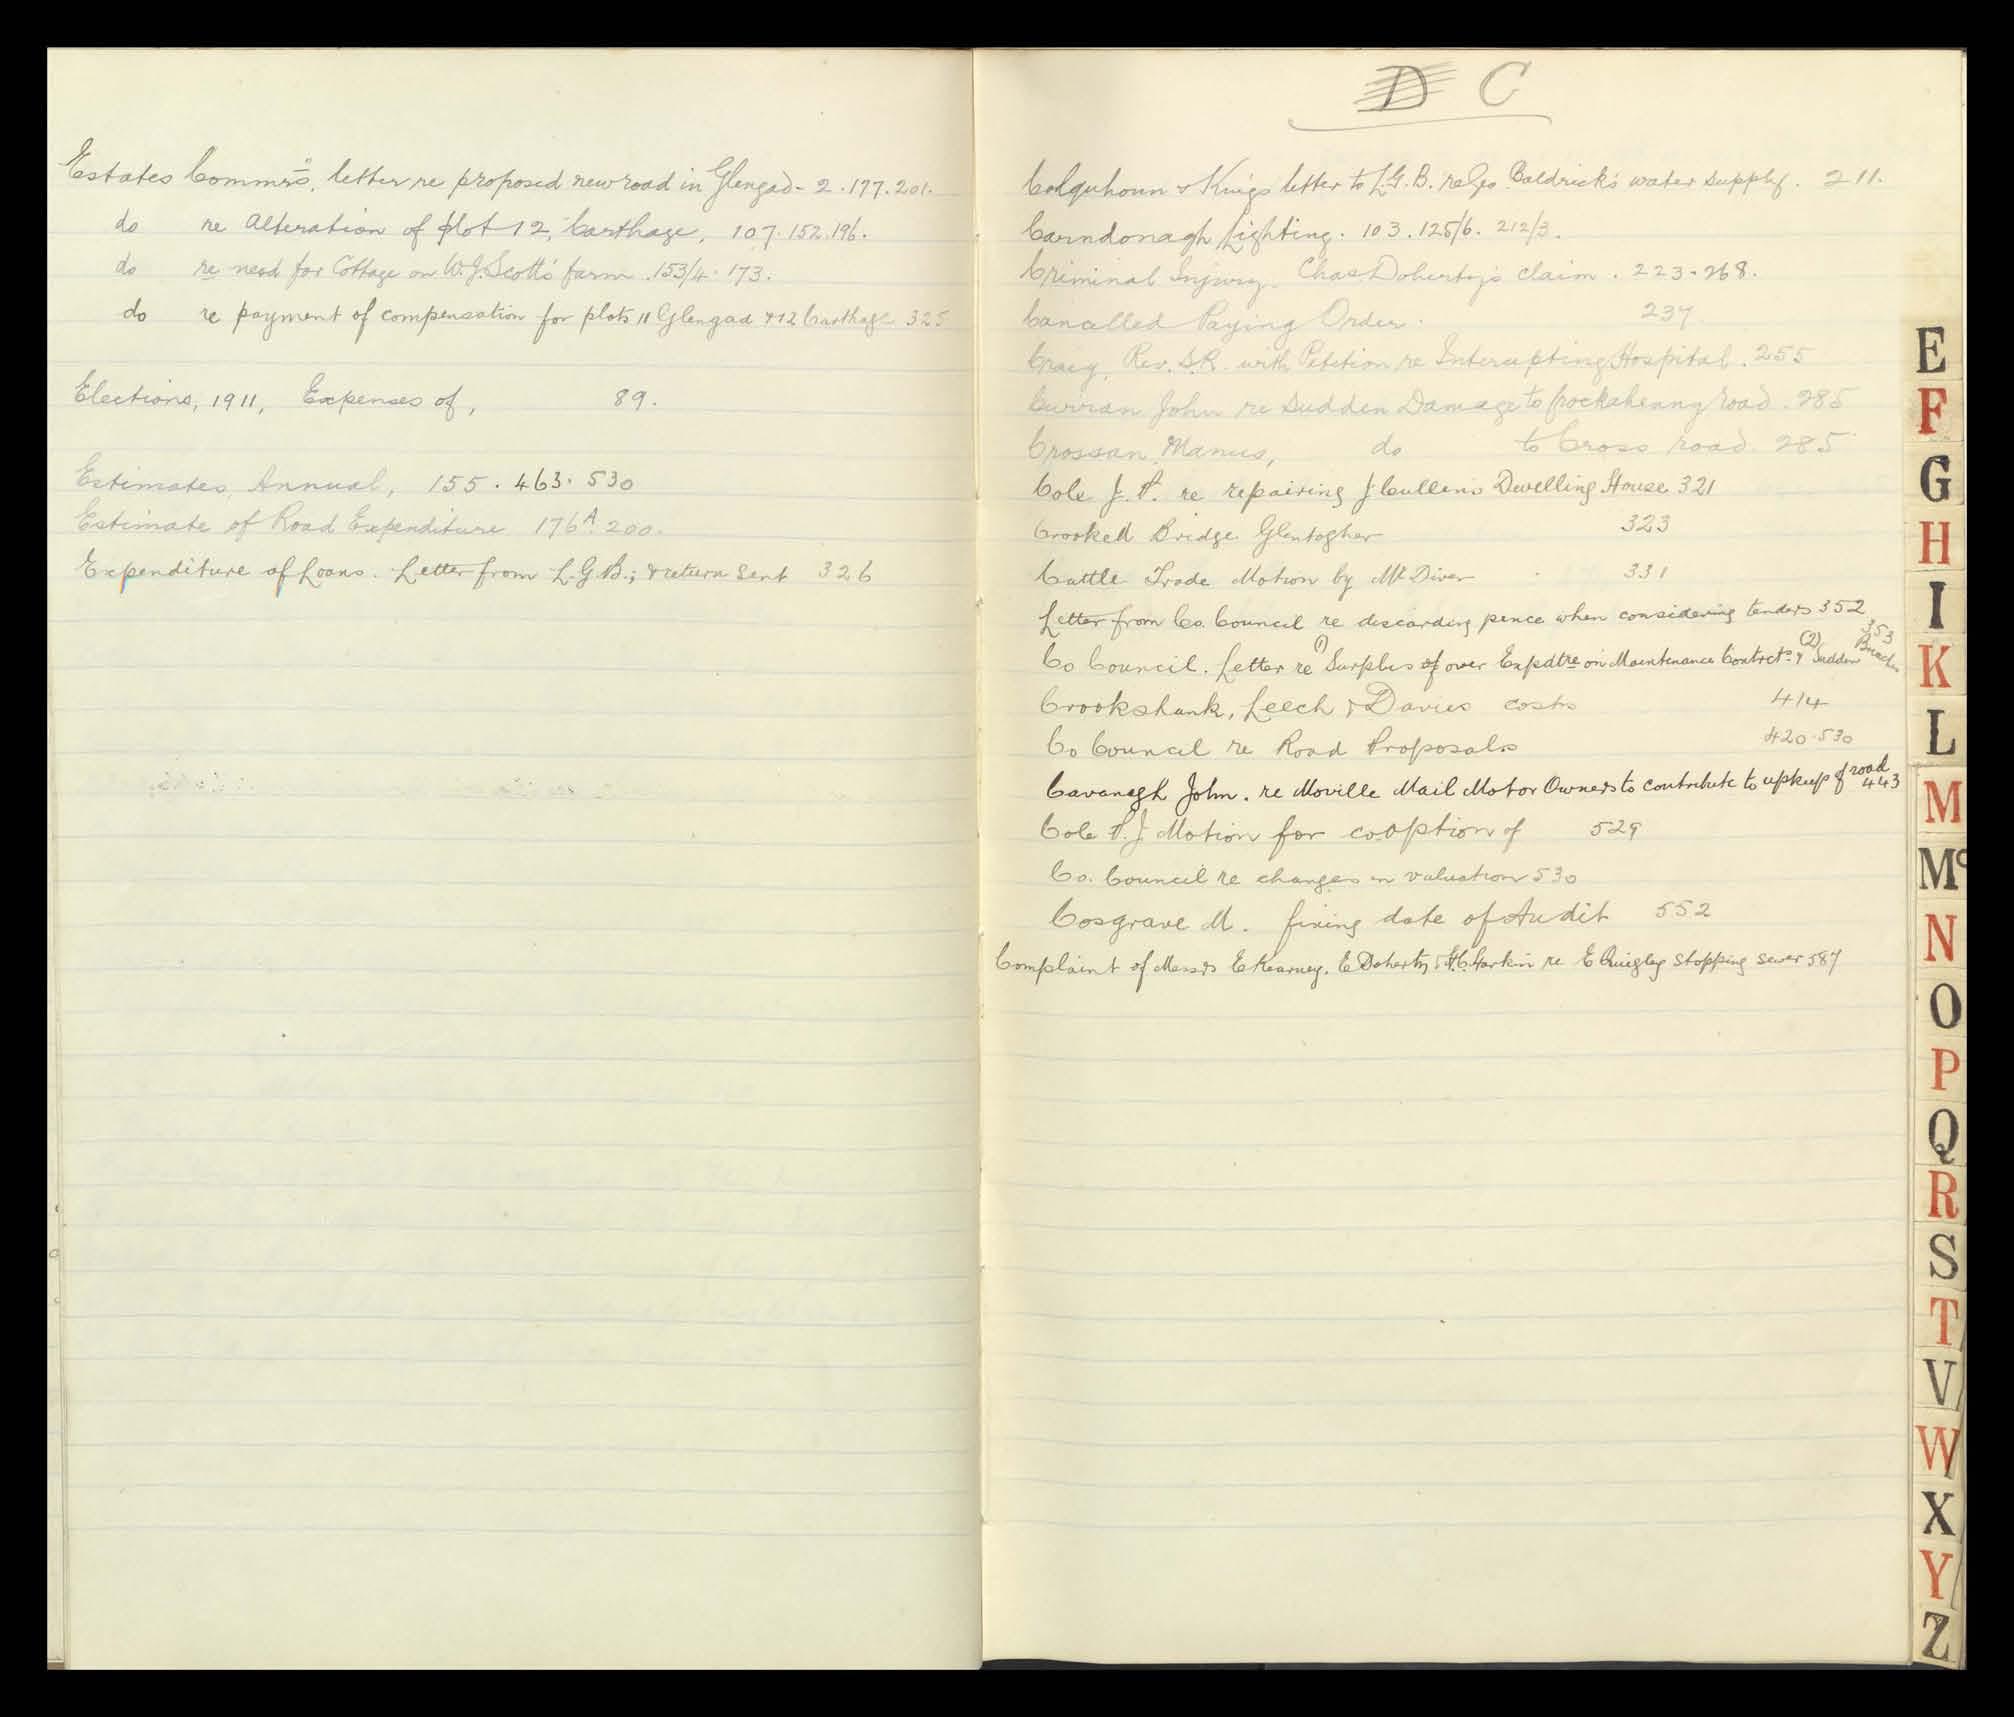 Estates Commrs, letter re proposed new road in Glengad - 2.177.201.
do re Alteration of plot 12, Carthage, 107.152.196.
do re need for Cottage on W.J. Scott's farm. 153/4. 173.
do re payment of compensation for plots 11 Glengad & 12 Carthage 325
Elections, 1911, Expenses of, 89.
Estimates, Annual, 155. 463. 530
Estimate of Road Expenditure 176A. 200.
Expenditure of Loans. Letter from L.G.B.; & return sent 326
D C
Colquhoun & Kings letter to L.G.B. re Geo Baldrick's water supply. 211.
Carndonagh Lighting. 103. 125/6. 212/3.
Criminal Injury. Chas Doherty's claim. 223-268.
Cancelled Paying Order. 237
Craig, Rev. S.R. with Petition re Intercepting Hospital. 255
Curran John re Sudden Damage to road. 285
Crossan, Manus, do to Cross road. 285
Cole J. P. re repairing J Cullen's Dwelling House 321
Crooked Bridge Glentogher 323
Cattle Trade Motion by Mr Diver 331
Letter from Co. Council re discarding pence when considering tenders 352
Co Council. Letter re (1) Surplus of over Expdtre on Maintenance Contrcts & (2) Sudden Breaches 353
Crookshank, Leech & Davies costs 414
Co Council re Road Proposals 420.530
Cavanagh John. re Moville Mail Motor Owners to contribute to upkeep of road 443
Cole P.J Motion for cooption of 529
Co. Council re changes in valuation 530
Cosgrave M. fixing date of Audit 552
Complaint of Messrs E Kearney, E Doherty & Harkin re E Quigley stopping sewer 587
E
F
G
H
I
K
L
M
Mc
N
O
P
Q
R
S
T
V
W
X
Y
Z